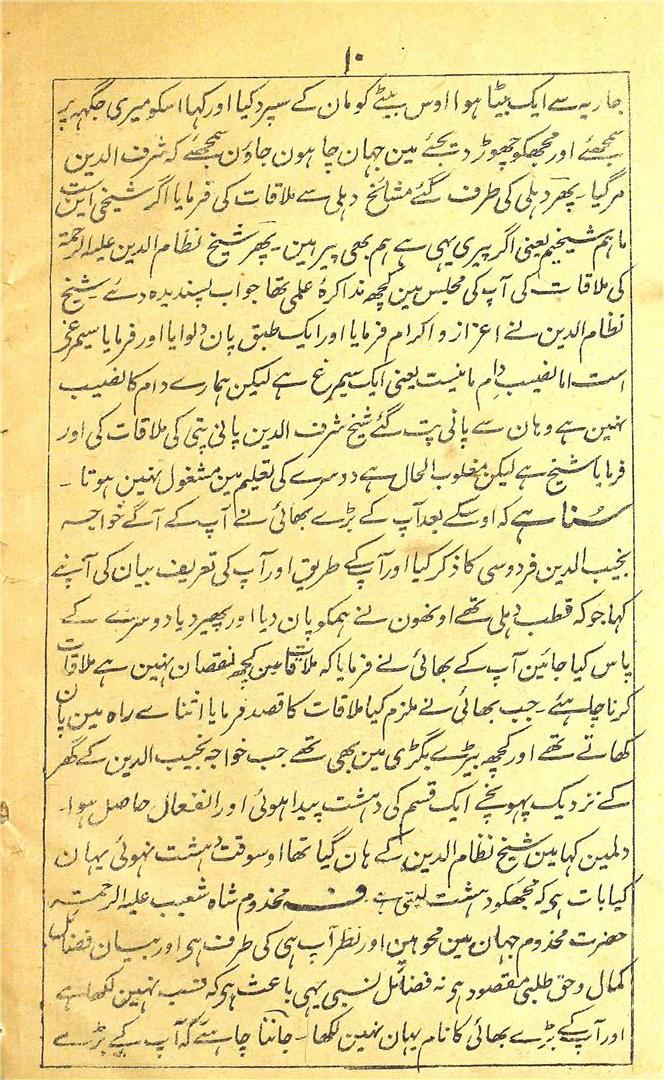 ۱۰
جاریہ سے ایک بیٹا ہوا اوس بیٹے کو مان کے سپرد کیا اور کہا اسکو میری جگہہ پر
سمجھئے اور مجھکو چھوڑ دیجئے مین جہان چاہون جاؤن سمجھئے کہ شرف الدین
مر گیا ۔ پھر دہلی کی طرف گئے مشائخ دہلی سے ملاقات کی فرمایا اگر شیخی این ست
ما ہم شیخیم یعنی اگر پیری یہی ہے ہم بھی پیر ہین ۔ پھر شیخ نظام الدین علیہ الرحمۃ
کی ملاقات کی آپ کی مجلس مین کچھ مذاکرۂ علمی تھا جواب پسندیدہ دئے ۔ شیخ
نظام الدین نے اعزاز و اکرام فرمایا اور ایک طبق پان دلوایا اور فرمایا سیمرغے
است اما نصیب دام ما نیست یعنی ایک سیمرغ ہے لیکن ہمارے دام کا نصیب
نہین ہے وہان سے پانی پت گئے شیخ شرف الدین پانی پتی کی ملاقات کی اور
فرمایا شیخ ہے لیکن مغلوب الحال ہے دوسرے کی تعلیم مین مشغول نہین ہوتا ۔
سُنا ہے کہ اوسکے بعد آپ کے بڑے بھائی نے آپ کے آگے خواجہ
نجیب الدین فردوسی کا ذکر کیا اور آپکے طریق اور آپ کی تعریف بیان کی آپنے
کہا جو کہ قطب دہلی تھے اونھون نے ہمکو پان دیا اور پھیر دیا دوسرے کے
پاس کیا جائین آپ کے بھائی نے فرمایا کہ ملاقات مین کچھ نقصان نہین ہے ملاقات
کرنا چاہئے ۔ جب بھائی نے ملزم کیا ملاقات کا قصد فرمایا اثنائے راہ مین پان
کھاتے تھے اور کچھ بیڑے پگڑی مین بھی تھے جب خواجہ نجیب الدین کے گھر
کے نزدیک پہونچے ایک قسم کی دہشت پیدا ہوئی اور انفعال حاصل ہوا ۔
دلمین کہا مین شیخ نظام الدین کے ہان گیا تھا اوسوقت دہشت نہوئی یہان
کیا بات ہو کہ مجھکو دہشت لیتی ہے ۔ ف مخدوم شاہ شعیب علیہ الرحمتہ
حضرت مخدوم جہان مین محو ہین اور نظر آپ ہی کی طرف ہو اور بیان فضائل
کمال و حق طلبی مقصود ہو نہ فضائل نسبی یہی باعث ہو کہ نسب نہین لکھا ہے
اور آپکے بڑے بھائی کا نام یہان نہین لکھا ۔ جاننا چاہئے کہ آپ کے بڑے